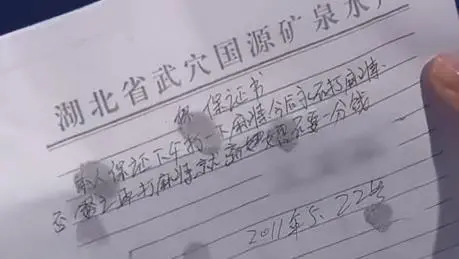 湖北省武穴国源矿泉水
保证书
本人保证下午打一下麻将后永不打麻将.
否 再打麻将就 离婚 不要一分钱
2011年5.22号